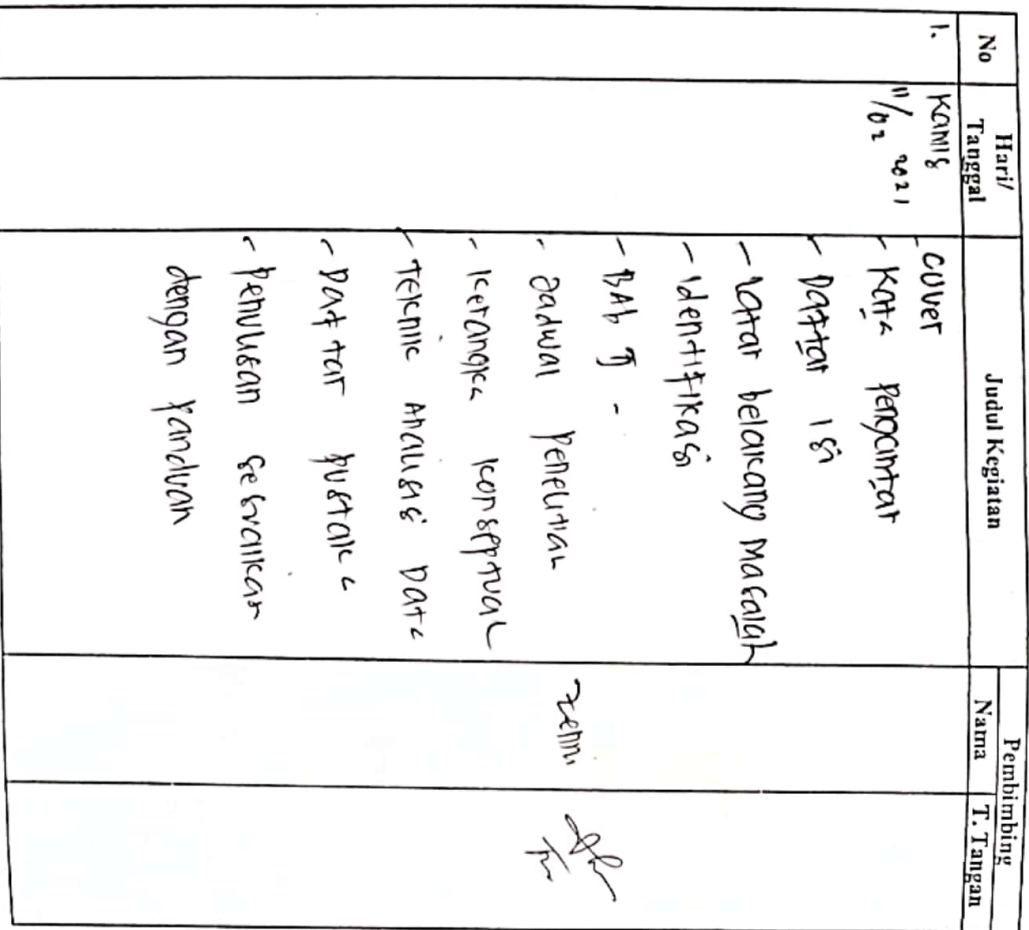 No
Hari/
Tanggal
Judul Kegiatan
Pembimbing
Nama
T. Tangan
1.
Kamis
11/02 2021
- Cover
- Kata pengantar
- Daftar isi
- latar belakang Masalah
- Identifikasi
- BAb II -
- Jadwal penelitian
- Kerangka konseptual
- Teknik Analisis Data
- Daftar pustaka
- penulisan sesuaikan
dengan panduan